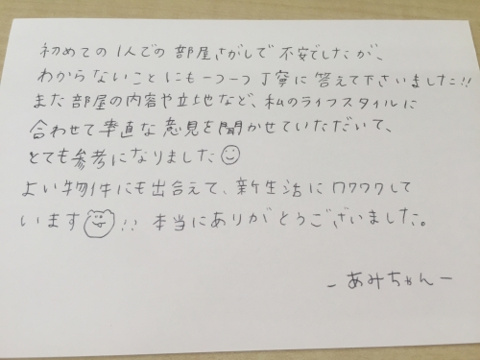 初めての1人での部屋さがしで不安でしたが、
わからないことにも一つ一つ丁寧に答えて下さいました!!
また部屋の内容や立地など、私のライフスタイルに
合わせて率直な意見を聞かせていただいて、
とても参考になりました
よい物件にも出会えて、新生活にワクワクして
います!! 本当にありがとうございました。
-あみちゃん-